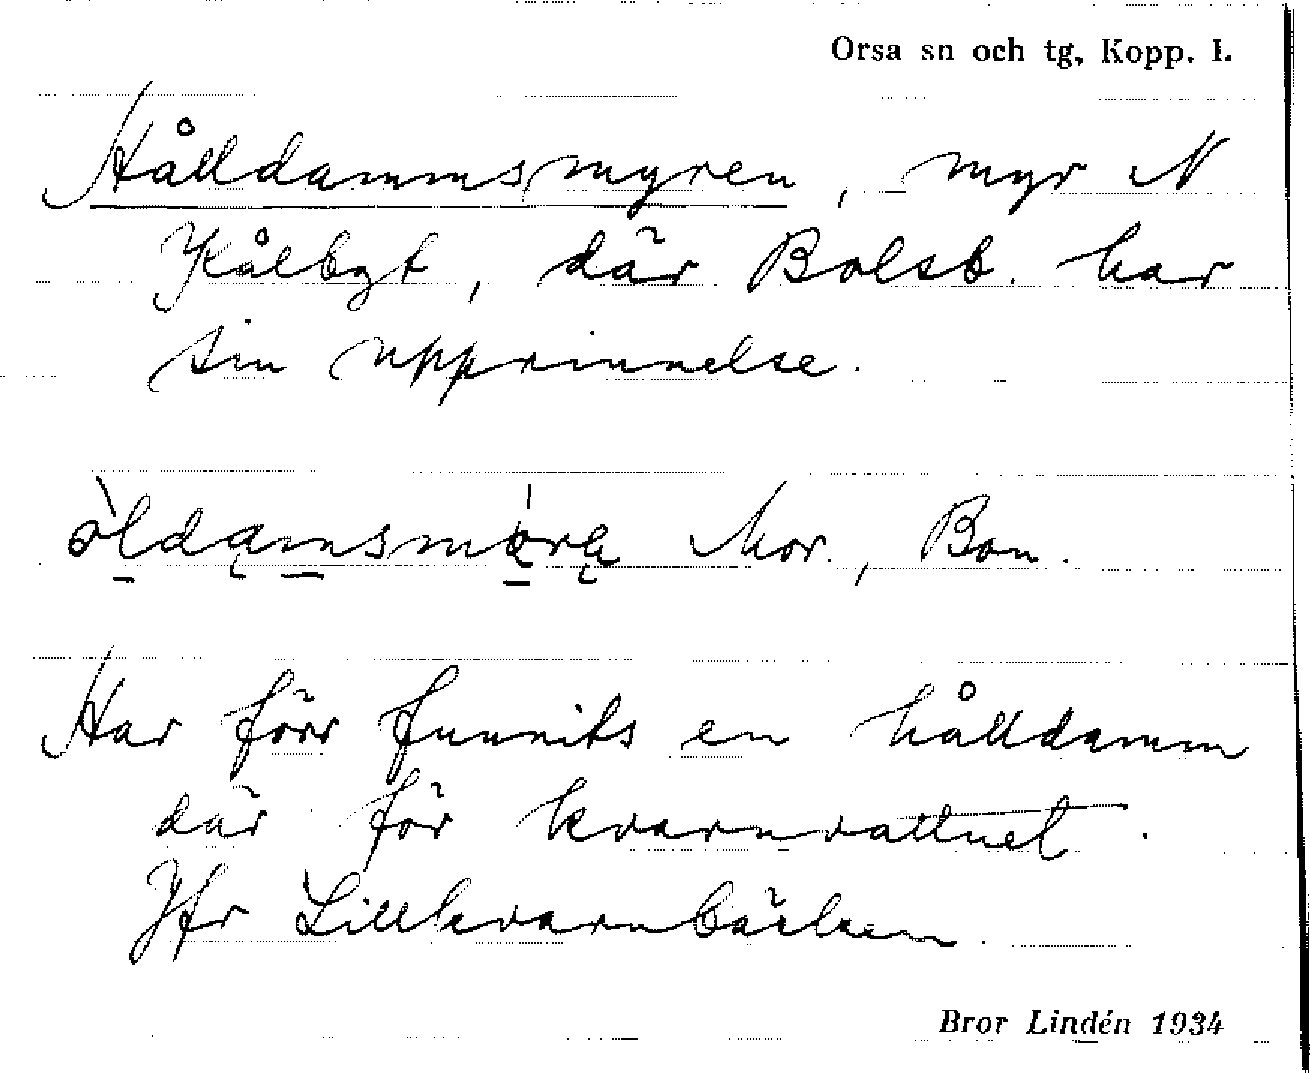 Orsa sn och tg, Kopp. l.
Hålldammsmyren, myr N
Kålbgt, där Bolsb. har
sin upprinnelse.
Mor., Bon.
Har förr funnits en hålldamm
där för kvarnvattnet.
Jfr Lillkvarnbäcken.
Bror Lindén 1934